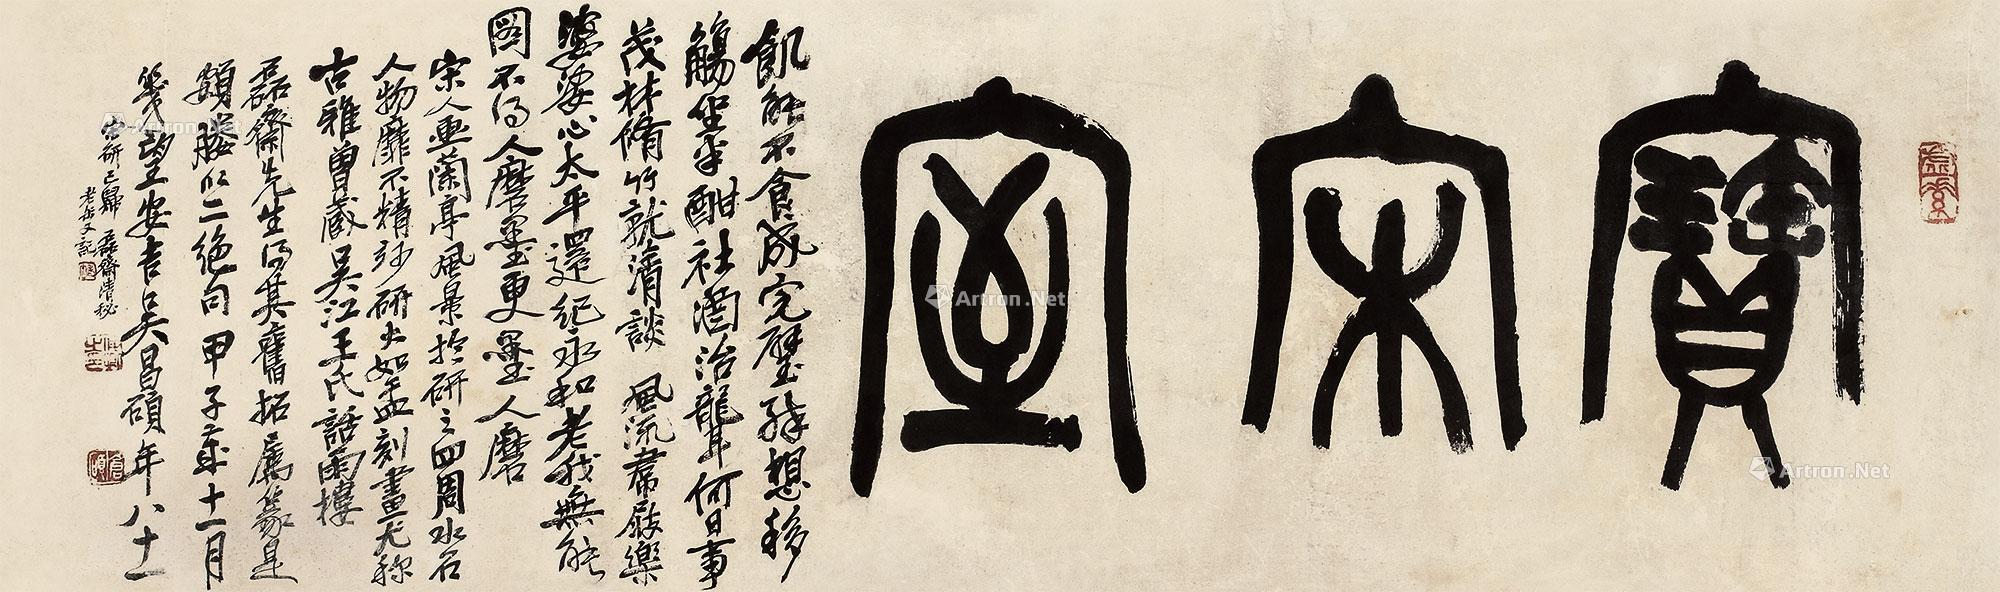 寶宋室
飢能不食成完璧殊想移
觴坐半酣社酒治聾耳何日事
茂林脩竹就清談 風流裙屐樂
婆娑心太平還紀永和老我無能
圖不得人磨墨更墨人磨
宋人畫蘭亭風景於研之四周水石
人物靡不精妙研大如盂刻畫尤稱
古雅曾藏吳江王氏話雨樓
磊齋先生得其舊拓屬篆是
額媵以二絕句甲子歲十一月
幾望安吉吳昌碩年八十一
宋研已歸 磊齋清秘
老缶又記
Artron.Net
Artron.Net
Artron.Net
Artron.Net
Artron.Net
Artron.Net